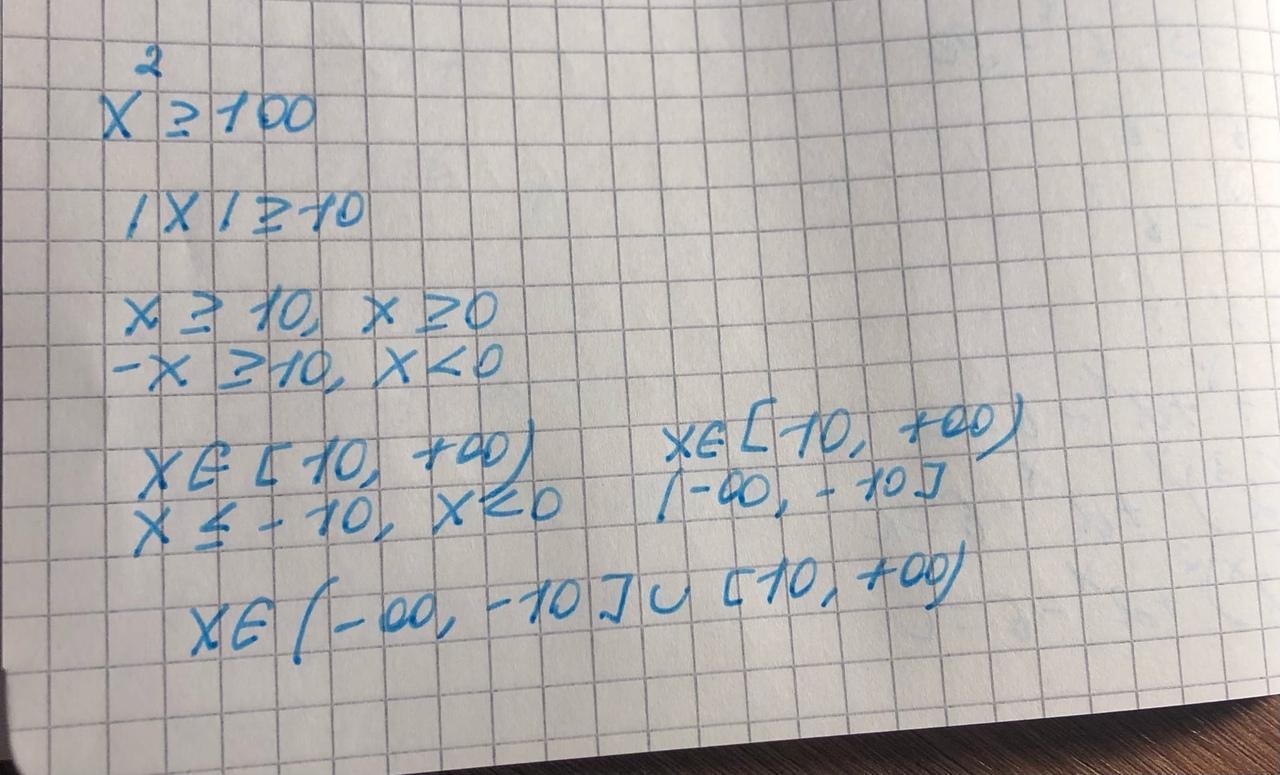 x² ≥ 100
|x| ≥ 10
x ≥ 10, x ≥ 0
-x ≥ 10, x < 0
x ∈ [10, +∞)
x ≤ -10, x < 0
x ∈ [10, +∞)
(-∞, -10]
x ∈ (-∞, -10] ∪ [10, +∞)